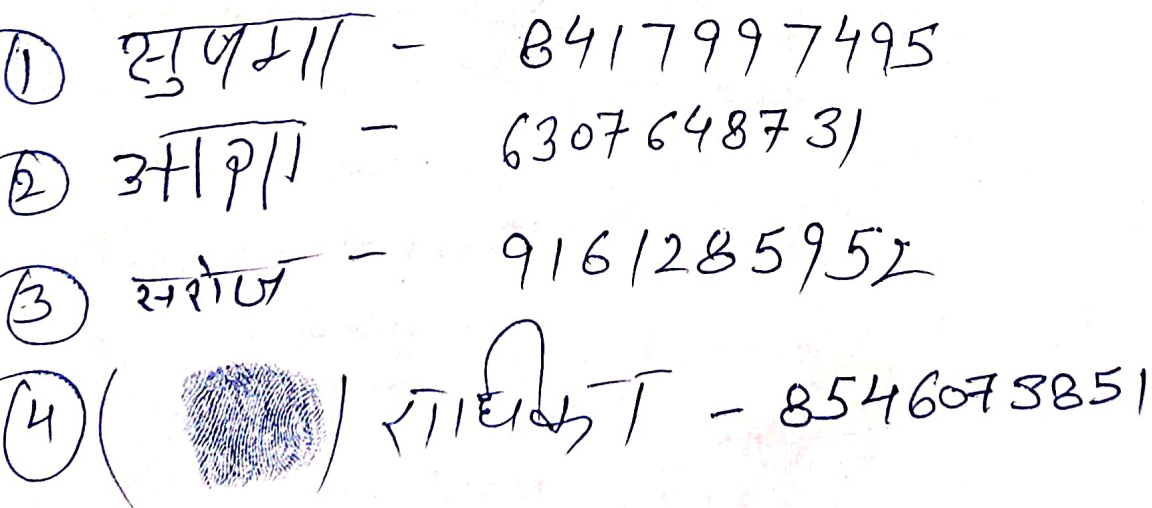 ① सुषमा - 8417997495
② आशा - 6307648731
③ सरोज - 9161285952
④ ( ) राधिका - 8546073851